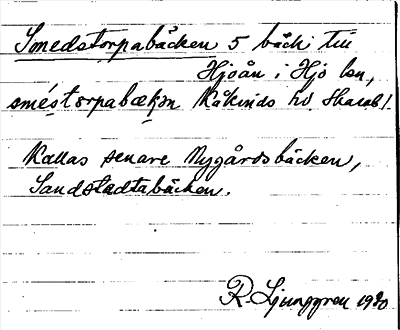 Smedstorpabäcken 5 bäck till
Hjoån i Hjo lsn,
Kåkinds hd. Skarab l
Kallas senare Nygårdsbäcken,
Sandstadtabäcken.
R. Ljunggren 1930